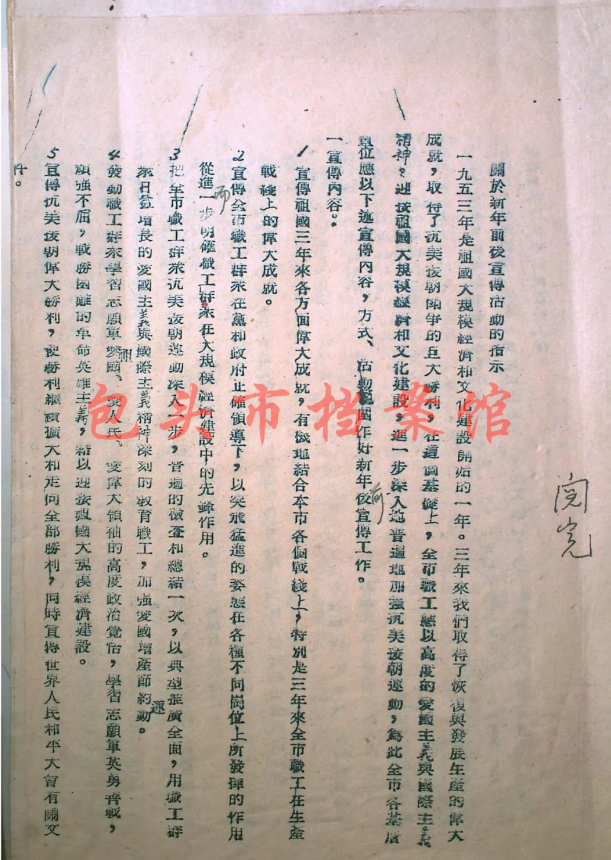 關於新年前後宣傳活動的指示
一九五三年是祖國大規模經濟和文化建設開始的一年。三年來我們取得了恢復與發展生產的偉大
成就，取得了抗美援朝鬪爭的巨大勝利，在這個基礎上，全市職工應以高度的愛國主義與國際主義
精神，迎接祖國大規模經濟和文化建設，進一步深入地普遍地加強抗美援朝運動，為此全市各基層
單位應以下述宣傳內容，方式、活動範圍作好新年前後宣傳工作。
一宣傳內容。
1宣傳祖國三年來各方面偉大成就，有機地結合本市各個戰綫上，特別是三年來全市職工在生產
戰綫上的偉大成就。
2宣傳全市職工群衆在黨和政府正確領導下，以突飛猛進的姿態在各種不同崗位上所發揮的作用
從而進一步明確職工群衆在大規模經濟建設中的先鋒作用。
3把全市職工群衆抗美援朝運動深入一步，普遍的檢查和總結一次，以典型推廣全面，用職工群
衆日益增長的愛國主義與國際主義精神深刻的教育職工，加強愛國增產節約運動。
4發動職工群衆學習志願軍愛國、愛人民、愛偉大領袖的高度政治覺悟，學習志願軍英勇奮戰，
頑強不屈，戰勝困難的革命英雄主義，藉以迎接祖國大規模經濟建設。
5宣傳抗美援朝偉大勝利，使勝利繼續擴大和走向全部勝利，同時宣傳世界人民和平大會有關文
件。
阅完
包头市档案馆